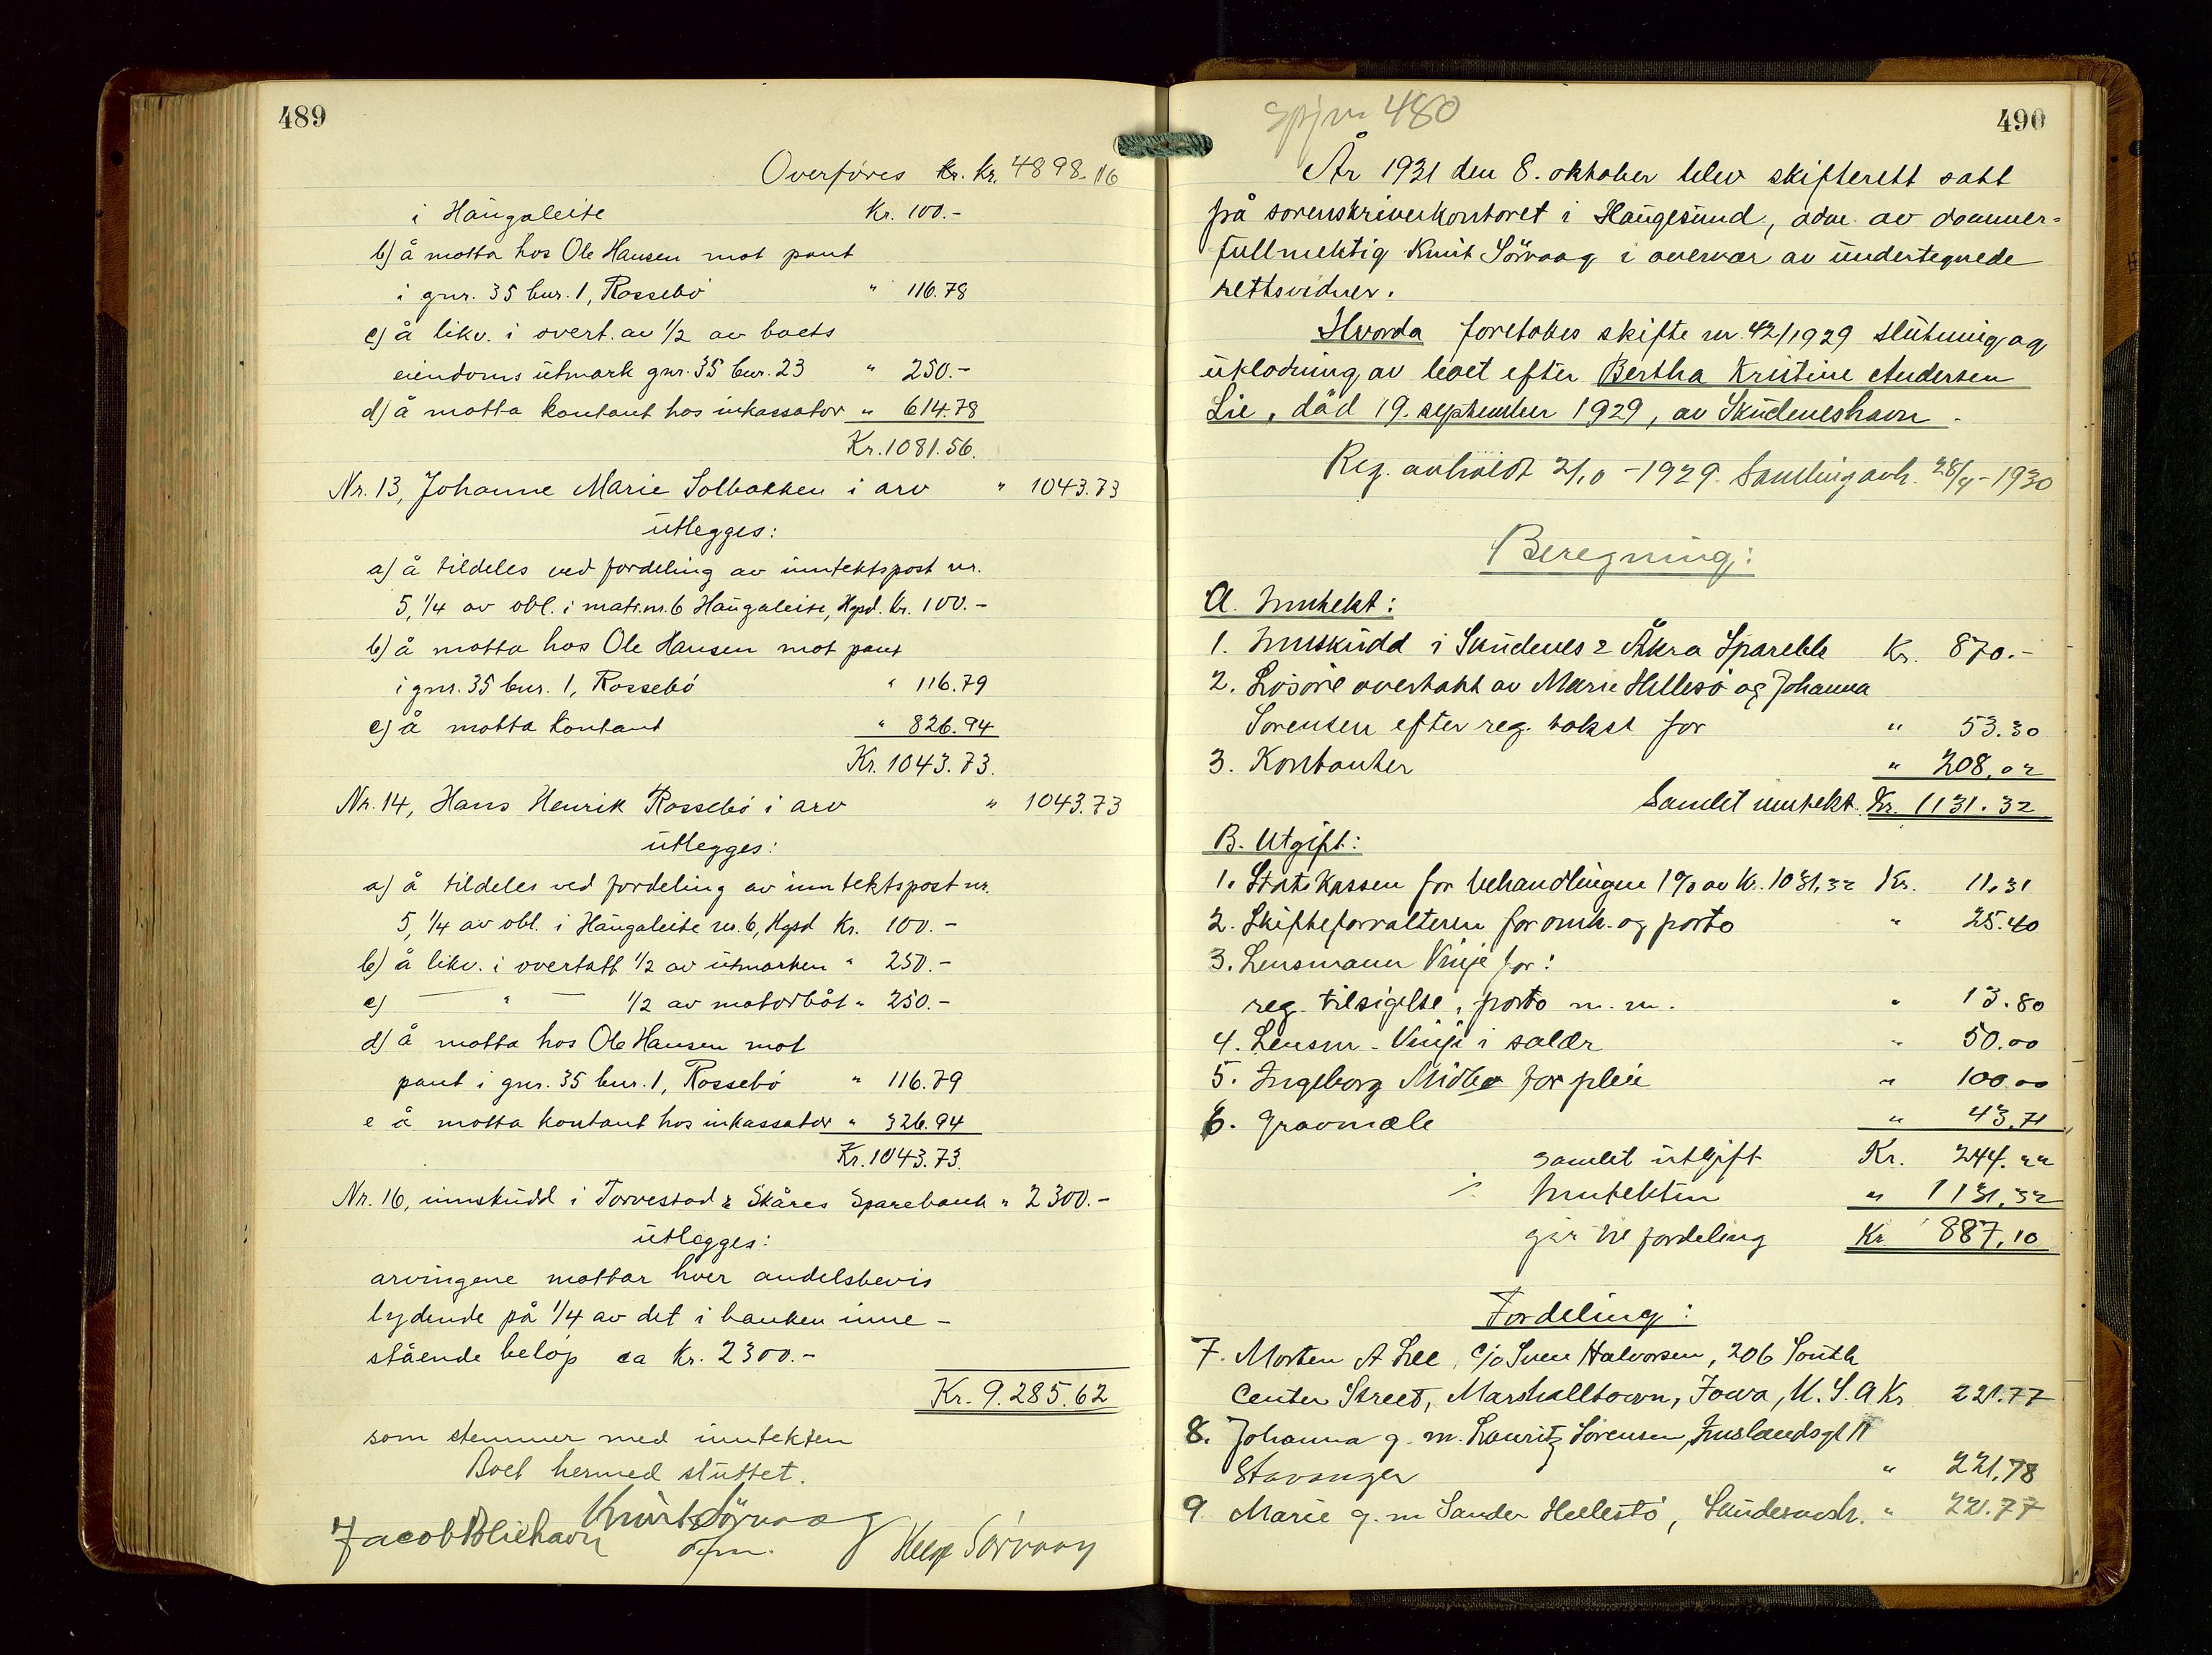 489
Overføres Kr. Kr. 4898.16
i Haugaleite Kr. 100.-
b) å motta hos Ole Hansen mot pant
i gnr. 35 bnr. 1, Rossebø " 116.78
c) å likv. i overt. av 1/2 av boets
eiendoms utmark gnr. 35 bnr. 23 " 250.-
d) å motta kontant hos inkassator " 614.78
Kr. 1081.56.
Nr. 13, Johanne Marie Solbakken i arv " 1043.73
utlegges:
a) å tildeles ved fordeling av inntektspost nr.
5, 1/4 av obl. i matr.nr. 6 Haugaleite, Hgsd. Kr. 100.-
b) å motta hos Ole Hansen mot pant
i gnr. 35 bnr. 1, Rossebø " 116.79
c) å motta kontant " 826.94
Kr. 1043.73.
Nr. 14, Hans Henrik Rossebø i arv " 1043.73
utlegges:
a) å tildeles ved fordeling av inntektspost nr.
5, 1/4 av obl. i Haugaleite nr. 6, Hgsd Kr. 100.-
b) å likv. i overtatt 1/2 av utmarken " 250.-
c) — " — 1/2 av motorbåt " 250.-
d) å motta hos Ole Hansen mot
pant i gnr. 35 bnr. 1, Rossebø " 116.79
e å motta kontant hos inkassator " 326.94
Kr. 1043.73.
Nr. 16, innskudd i Torvestad & Skåres Sparebank " 2300.-
utlegges:
arvingene mottar hver andelsbevis
lydende på 1/4 av det i banken inne-
stående beløp ca Kr. 2300.-
Kr. 9.285.62
som stemmer med inntekten
Boet hermed sluttet.
Knut Sørvaag
Jacob Bliehavn dfm. Helge Sørvaag
480
490
År 1931 den 8. oktober blev skifterett satt
på sorenskriverkontoret i Haugesund, adm. av dommer-
fullmektig Knut Sørvaag i overvær av undertegnede
rettsvidner.
Hvorda foretokes skifte nr. 42/1929 slutning og
utlodning av boet efter Bertha Kristine Andersen
Lie, død 19. september 1929, av Skudeneshavn.
Reg. avholdt 2/10-1929. Samling avh. 28/4-1930
Beregning:
A. Inntekt:
1. Innskudd i Skudenes & Åkra Sparebk Kr. 870.-
2. Løsøre overtatt av Marie Hillesø og Johanna
Sørensen efter reg. takst for " 53.30
3. Kontanter " 208.02
Samlet inntekt Kr. 1131.32
B. Utgift:
1. Statskassen for behandlingen 1% av Kr. 1031,32 Kr. 11.31
2. Skifteforvalteren for omk. og porto " 25.40
3. Lensmann Vinje for:
reg. tilsigelse, porto m.m. " 13.80
4. Lensm. Vinje i salær " 50.00
5. Ingeborg Midbø for pleie " 100.00
6. Gravmæle " 43.71
samlet utgift Kr. 244.22
Inntekten " 1131,32
går til fordeling Kr. 887,10
Fordeling:
7. Morten A Lee, c/o Sven Halvorsen, 206 South
Center Street, Marshalltown, Iowa, U.S.A Kr 221.77
8. Johanna g. m. Lauritz Sørensen, 11
Stavanger " 221.78
9. Marie g. m Sander Hillestø, " 221.77